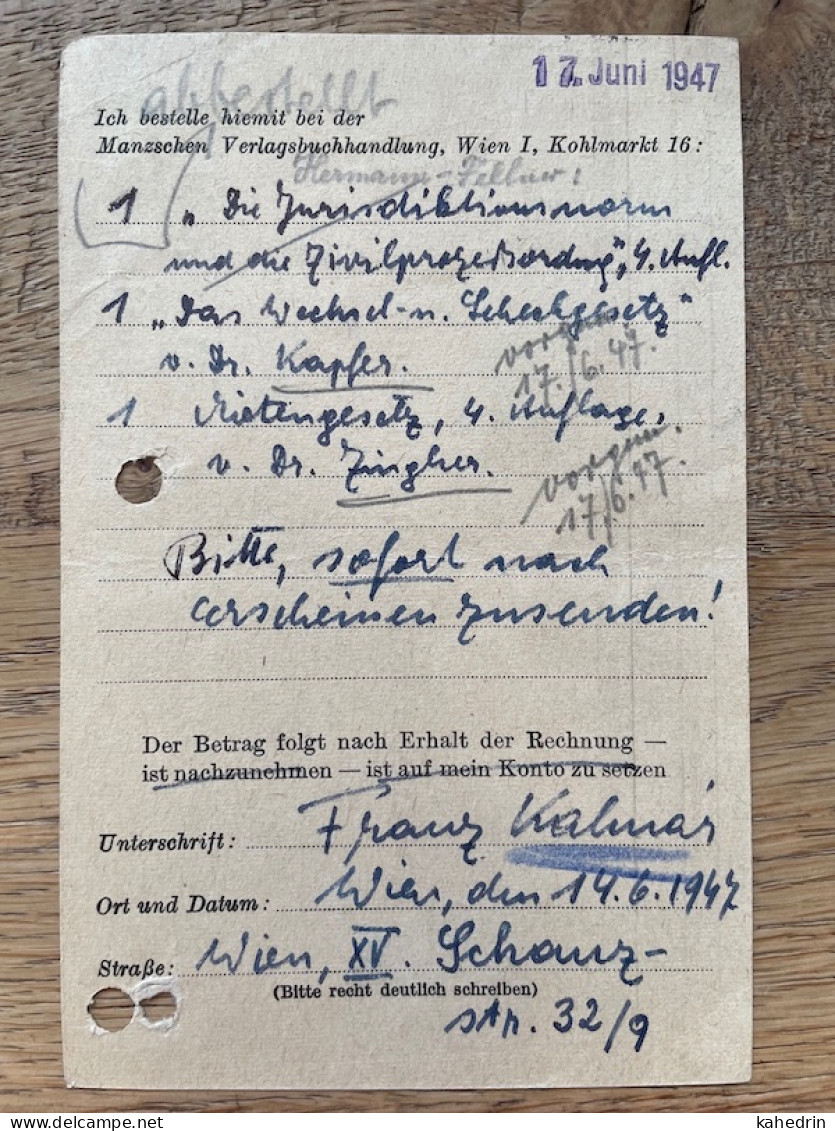 17. Juni 1947
abbestellt
Ich bestelle hiemit bei der
Manzschen Verlagsbuchhandlung, Wien I, Kohlmarkt 16:
Hermann-Fellner:
1 „Die Jurisdiktionsnorm
und die Zivilprozeßordnung", 4. Aufl.
1 „Das Wechsel- u. Scheckgesetz"
v. Dr. Kapfer.
vorgem.
17./6.47.
1 Mietengesetz, 4. Auflage,
v. Dr. Zingher.
vorgem.
17/6.47.
Bitte, sofort nach
erscheinen zusenden!
Der Betrag folgt nach Erhalt der Rechnung —
ist nachzunehmen — ist auf mein Konto zu setzen
Unterschrift: Franz Kalmár
Ort und Datum: Wien, den 14.6.1947
Straße: Wien, XV. Schanz-
(Bitte recht deutlich schreiben)
str. 32/9
kahedrin